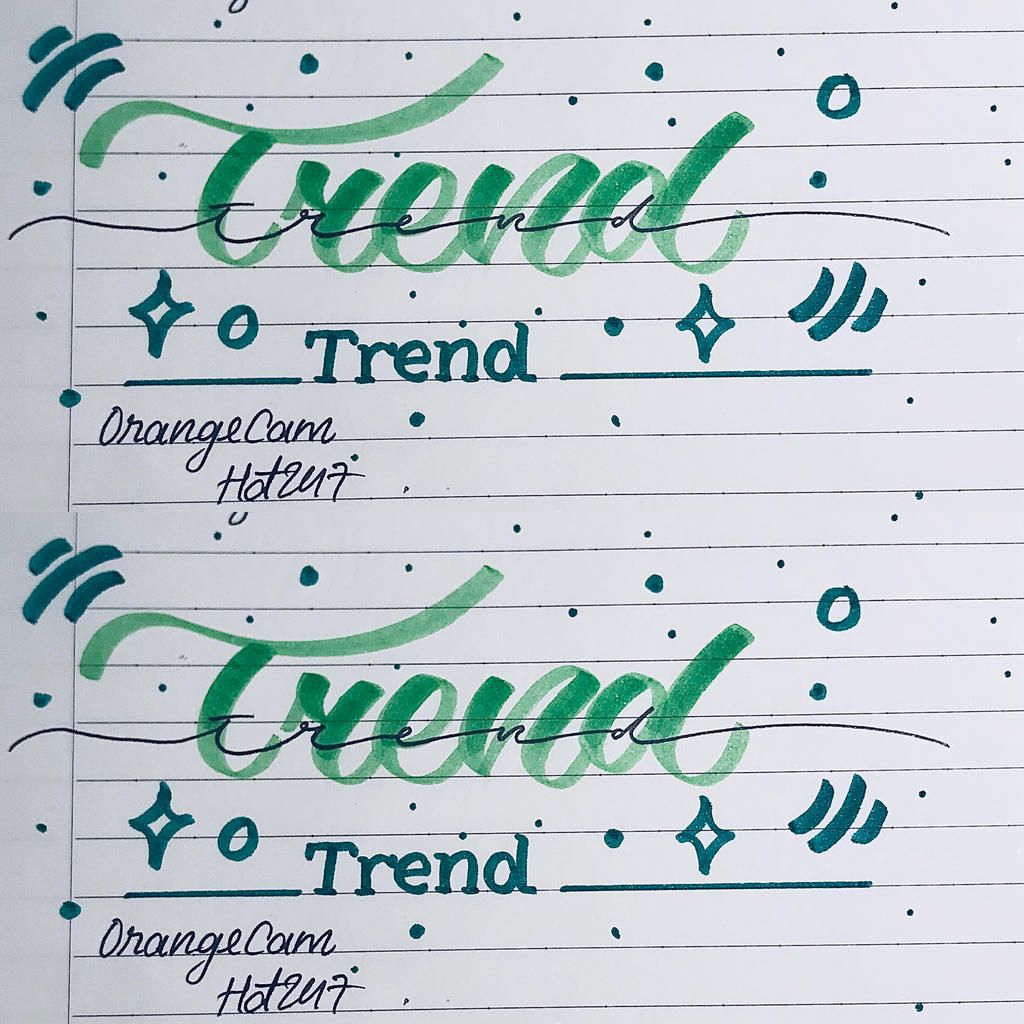 Trend
trend
Trend
OrangeCam
Hot247
Trend
trend
Trend
OrangeCam
Hot247